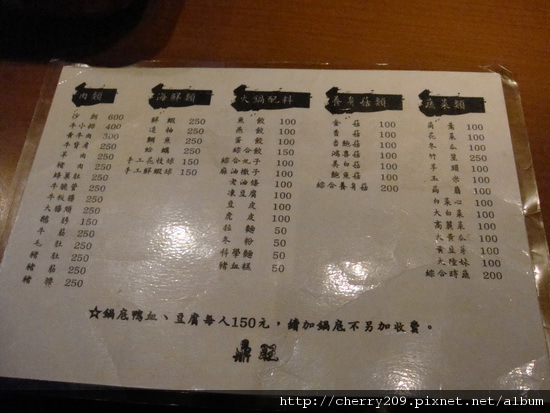 肉類
沙朗 600
牛小排 400
300
200
羊肉 250
豬肉 250
250
250
250
大腸頭 250
鵝腸 150
牛筋 250
毛肚 250
豬 250
豬腰 250
海鮮類
鮮蝦 250
250
鯛魚 250
蛤蠣 250
手工花枝球 150
手工鮮蝦球 150
火鍋配料
魚餃 100
燕餃 100
蛋餃 100
綜合餃 150
綜合丸子 100
麻糬丸子 100
油條 100
老油條 100
凍豆腐 100
豆皮 100
虎皮 100
拉麵 50
冬粉 50
科學麵 50
豬血糕 50
養身菇類
金菇 100
香菇 100
杏鮑菇 100
鴻喜菇 100
美白菇 100
鮑魚菇 100
綜合養身菇 200
蔬菜類
100
冬瓜 100
竹 100
芋頭 100
玉米 100
100
白菜心 100
大白菜 100
高麗菜 100
大黃瓜 100
黃豆芽 100
大陸妹 100
綜合時蔬 200
☆鍋底鴨血、豆腐每人150元，續加鍋底不另加收費。
鼎旺
http://cherry209.pixnet.net/album